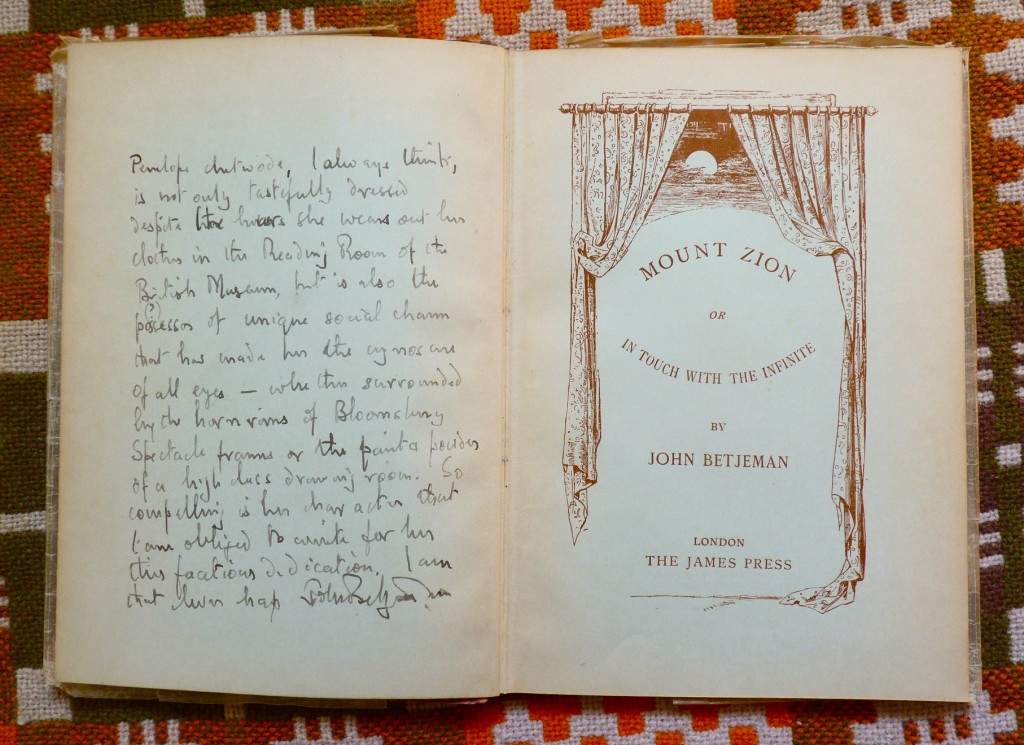 Penelope Chetwode, I always think,
is not only tastefully dressed
despite the hours she wears out her
clothes in the Reading Room of the
British Museum, but is also the
possessor of unique social charm
that has made her the cynosure
of all eyes — whether surrounded
by the horn rims of Bloomsbury
Spectacle frames or the paint & powder
of a high class drawing room. So
compelling is her character that
I am obliged to write for her
this facetious dedication. I am
that John Betjeman
MOUNT ZION
OR
IN TOUCH WITH THE INFINITE
BY
JOHN BETJEMAN
LONDON
THE JAMES PRESS